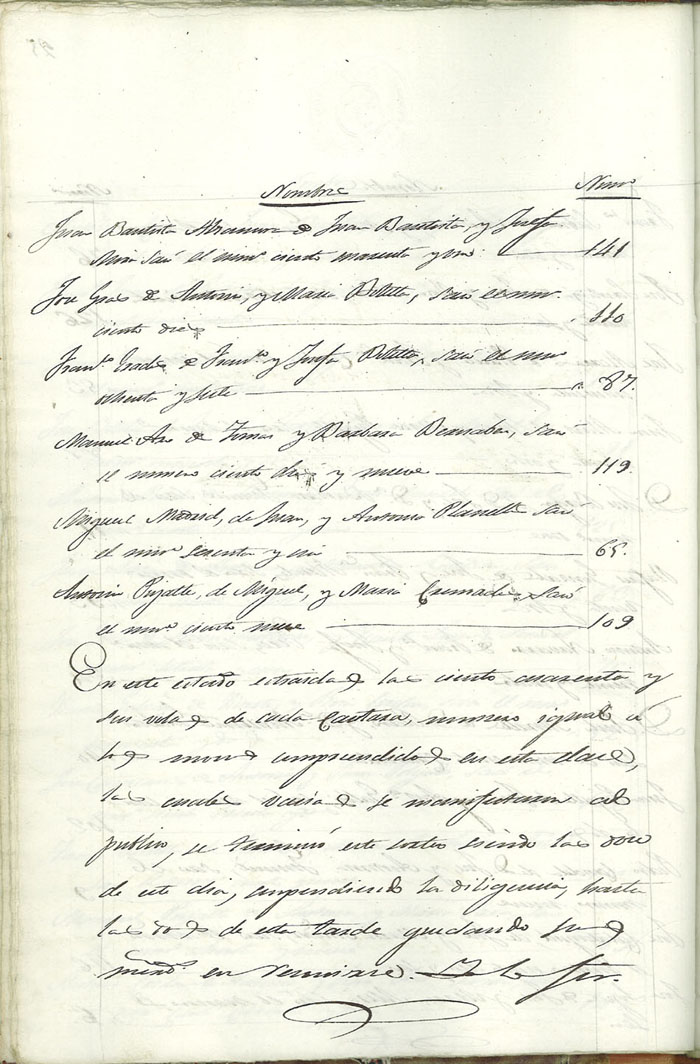 Nombre Num.º
Juan Bautista de Juan Bautista, y Josefa
Mira sacó el num.º ciento cuarenta y uno. 141
Jose Gras de Antonio, y Maria Beltra, sacó el num.º
ciento diez 110
Fran.co de Fran.co y Josefa Beltra, sacó el num.º
ochenta y siete 87.
Manuel de Tomas y Barbara Bernabeu, sacó
el numero ciento diez y nueve 119
Miguel Madrid, de Juan, y Antonia Planelles sacó
el num.º sesenta y 65.
Antonio Pujalte, de Miguel, y Maria Cremades, sacó
el num.º ciento nueve 109
En este estado estraidas las ciento cuarenta y
seis bolas de cada Cantara, numero igual á
los mozos comprendidos en esta clase,
las cuales vacias se manifestaron al
publico, se terminó este sorteo siendo las doce
de este dia, suspendiendo la diligencia, hasta
las dos de esta tarde quedando sus
en reunirse.